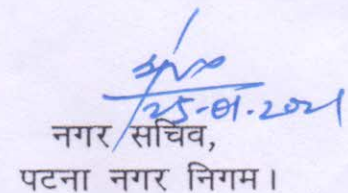 25-01-2021
नगर सचिव,
पटना नगर निगम।